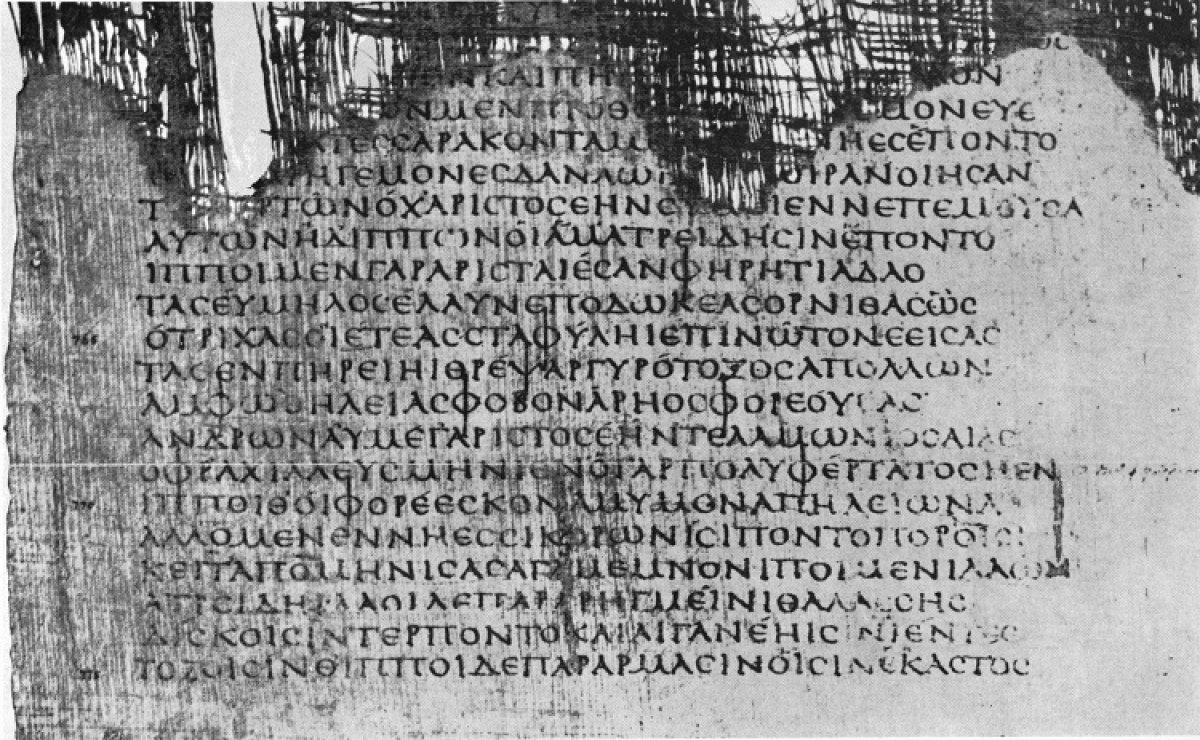 ΝΚΑΙΠΗ ΟΝ
ΩΝΜΕΝΠΡΟΘ ΜΟΝΕΥΕ
ΤΕϹϹΑΡΑΚΟΝΤΑΜ ΝΗΕϹΕΠΟΝΤΟ
ΗΓΕΜΟΝΕϹΔΑΝΑΩ ΟΙΡΑΝΟΙΗϹΑΝ
Τ ΡΤΩΝΌΧΑΡΙϹΤΟϹΕΗΝϹ ΙΕΝΝΕΠΕΜΟΥϹΑ
ΑΥΤΩΝΗΔΙΠΠΩΝΟΙΑΜΑΤΡΕΙΔΗϹΙΝΕΠΟΝΤΟ
ΙΠΠΟΙΜΕΝΓΑΡΑΡΙϹΤΑΙΕϹΑΝΦΗΡΗΤΙΑΔΑΟ
ΤΑϹΕΥΜΗΛΟϹΕΛΑΥΝΕΠΟΔΩΚΕΑϹΟΡΝΙΘΑϹΩϹ
765 ΟΤΡΙΧΑϹΟΙΕΤΕΑϹϹΤΑΦΥΛΗΙΕΠΙΝΩΤΟΝΕΕΙϹΑϹ
ΤΑϹΕΝΠΗΡΕΙΗΙΘΡΕΨΑΡΓΥΡΟΤΟΞΟϹΑΠΟΛΛΩΝ
ΑΜΦΩΘΗΛΕΙΑϹΦΟΒΟΝΑΡΗΟϹΦΟΡΕΟΥϹΑϹ
ΑΝΔΡΩΝΑΥΜΕΓΑΡΙϹΤΟϹΕΗΝΤΕΛΑΜΩΝΙΟϹΑΙΑϹ
ΟΦΡΑΧΙΛΛΕΥϹΜΗΝΙΕΝΟΓΑΡΠΟΛΥΦΕΡΤΑΤΟϹΗΕΝ
770 ΙΠΠΟΙΘΟΙΦΟΡΕΕϹΚΟΝΑΜΥΜΟΝΑΠΗΛΕΙΩΝΑ
ΑΛΛΟΜΕΝΕΝΝΗΕϹϹΙΚΟΡΩΝΙϹΙΠΟΝΤΟΠΟΡΟΙϹΙ
ΚΕΙΤΑΠΟΜΗΝΙϹΑϹΑΓΑΜΕΜΝΟΝΙΠΟΙΜΕΝΙΛΑΩΝ
ΑΤΡΕΙΔΗΙΛΑΟΙΔΕΠΑΡΑΡΗΓΜΕΙΝΙΘΑΛΑϹϹΗϹ
ΔΙϹΚΟΙϹΙΝΤΕΡΠΟΝΤΟΚΑΙΑΙΓΑΝΕΗΙϹΙΝΙΕΝΤΕϹ
775 ΤΟΞΟΙϹΙΝΘΙΠΠΟΙΔΕΠΑΡΑΡΜΑϹΙΝΟΙϹΙΝΕΚΑϹΤΟϹ